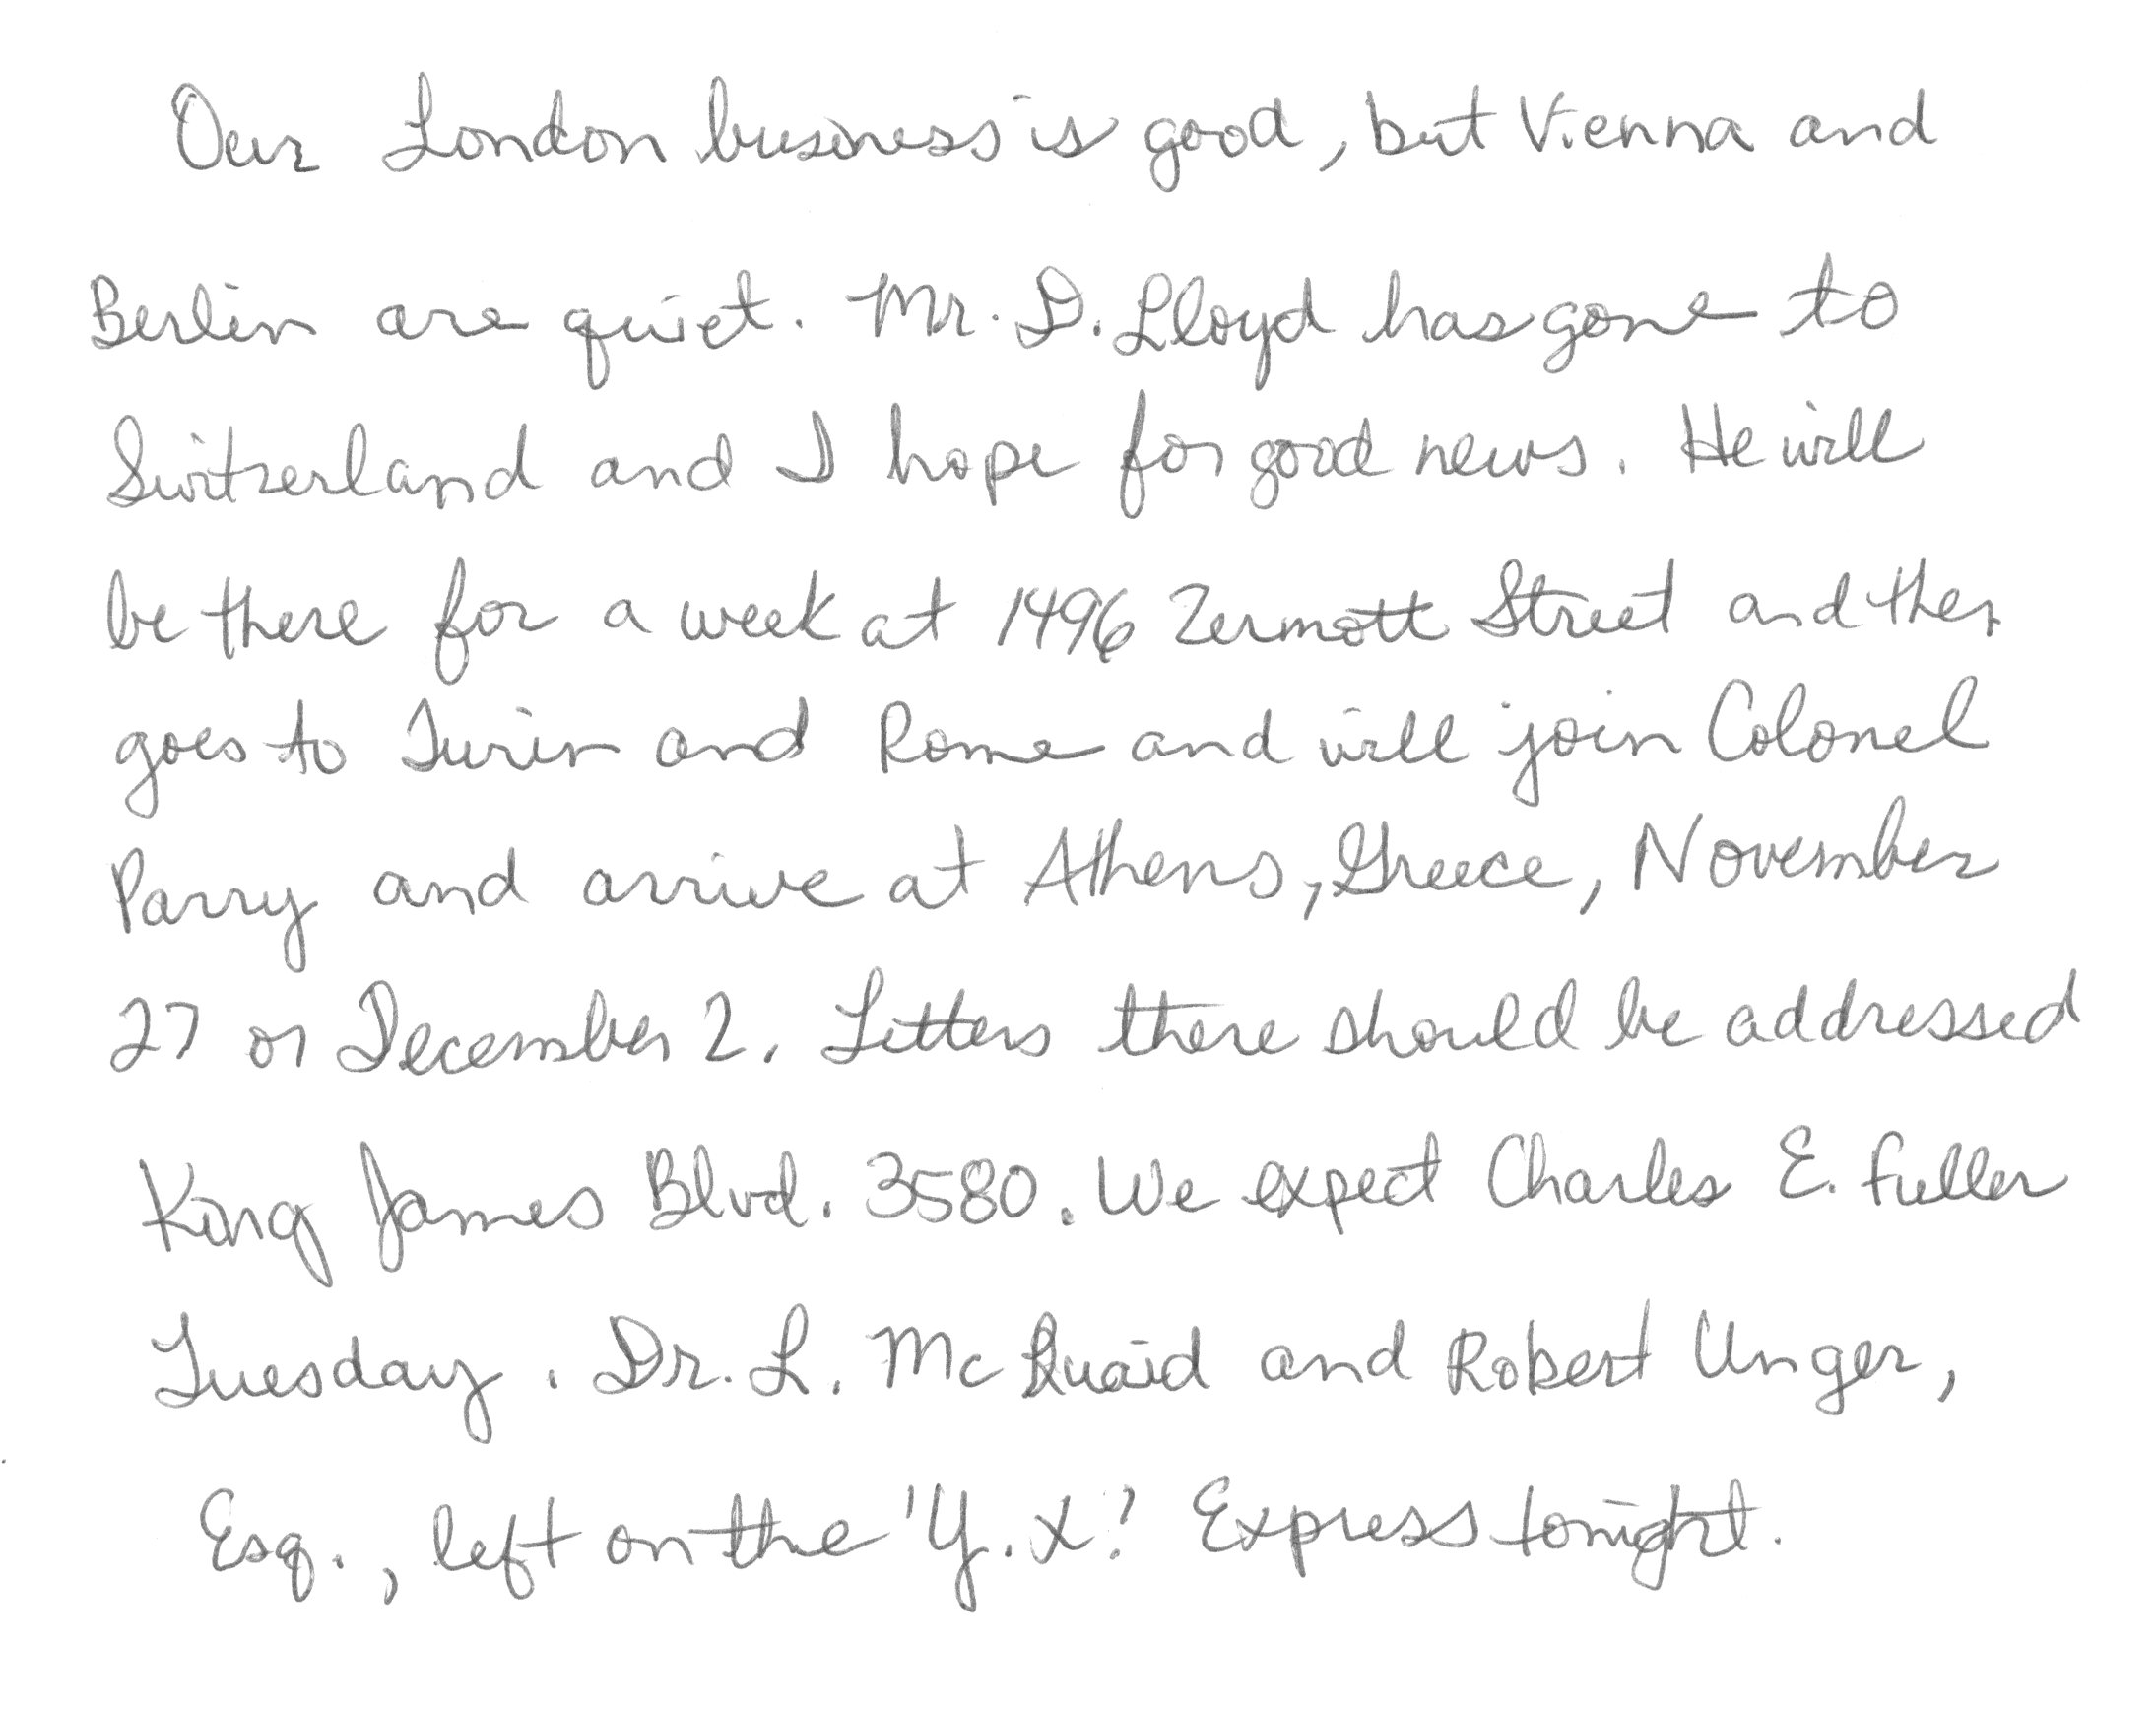 Our London business is good, but Vienna and
Berlin are quiet. Mr. D. Lloyd has gone to
Switzerland and I hope for good news. He will
be there for a week at 1496 Zermott Street and then
goes to Turin and Rome and will join Colonel
Parry and arrive at Athens, Greece, November
27 or December 2. Letters there should be addressed
King James Blvd. 3580. We expect Charles E. Fuller
Tuesday. Dr. L. McQuaid and Robert Unger,
Esq., left on the 'Y.X.' Express tonight.